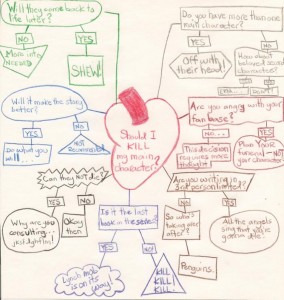 Will they come back to
life later?
NO
YES
SHEW!
Do you have more than one
main character?
YES
NO
Off with
their head!
How about
beloved second
characters?
Will it make the story
better?
YES
NO
Not
Recommended
Should I
KILL
my main
character?
Are you angry with your
fan base?
NO...
YES
This decision
requires more
thought
Plan your
funeral - NOT
your character's
Can they not die?
NO
YES
Why are you
consulting...
Okay
then
Are you writing in
3rd person limited?
NO
YES
So who's
taking over
after?
Penguins.
All the angels
sing that
Is it the last
book in the series?
YES
NO!
Lynch mob
is on its
way
KILL
KILL
KILL